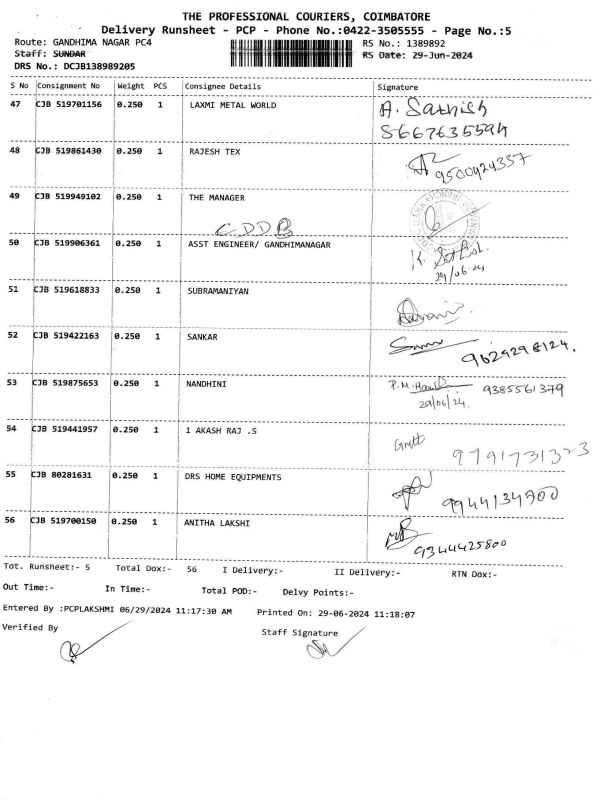 THE PROFESSIONAL COURIERS, COIMBATORE
Delivery Runsheet - PCP - Phone No.:0422-3505555 - Page No.:5
Route: GANDHIMA NAGAR PC4 RS No.: 1389892
Staff: SUNDAR RS Date: 29-Jun-2024
DRS No.: DCJB138989205
S No Consignment No Weight PCS Consignee Details Signature
47 CJB 519701156 0.250 1 LAXMI METAL WORLD A. Sathish
8667635594
48 CJB 519861430 0.250 1 RAJESH TEX 9500424337
49 CJB 519949102 0.250 1 THE MANAGER
CDDB
50 CJB 519906361 0.250 1 ASST ENGINEER/ GANDHIMANAGAR
29/06.24
51 CJB 519618833 0.250 1 SUBRAMANIYAN
52 CJB 519422163 0.250 1 SANKAR 9629298124.
53 CJB 519875653 0.250 1 NANDHINI P.M. 9385561379
29/06/24.
54 CJB 519441957 0.250 1 1 AKASH RAJ .S 9791731323
55 CJB 80281631 0.250 1 DRS HOME EQUIPMENTS 9944134700
56 CJB 519700150 0.250 1 ANITHA LAKSHI 9344425800
Tot. Runsheet:- 5 Total Dox:- 56 I Delivery:- II Delivery:- RTN Dox:-
Out Time:- In Time:- Total POD:- Delvy Points:-
Entered By :PCPLAKSHMI 06/29/2024 11:17:30 AM Printed On: 29-06-2024 11:18:07
Verified By Staff Signature